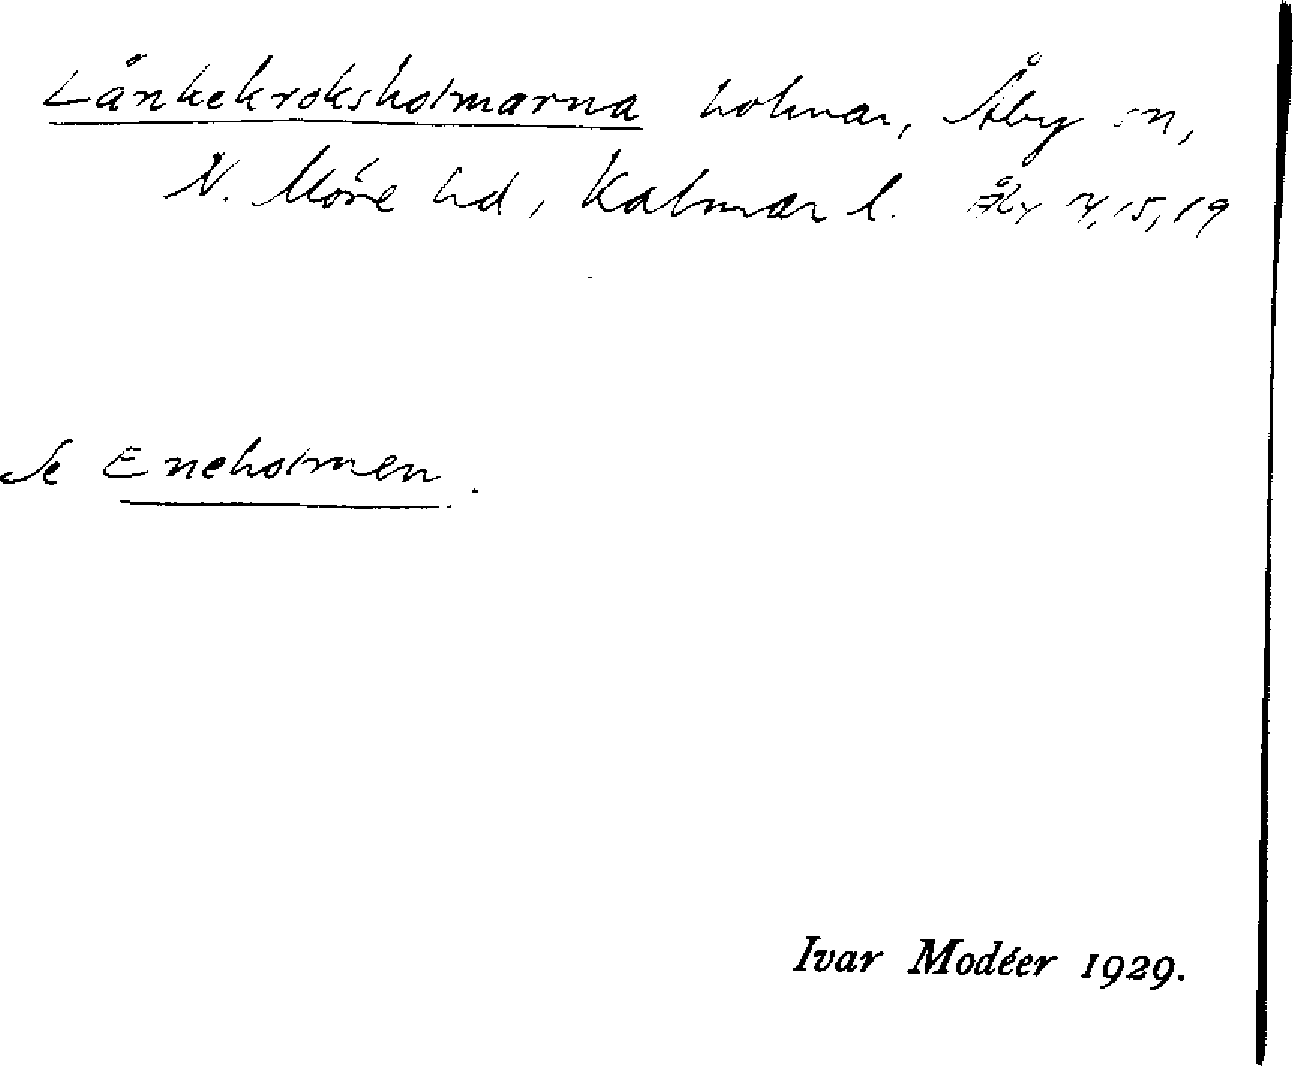 Länkekroksholmarna holmar, Åby sn,
N. Möre hd, Kalmar l. 15, 19
Se Eneholmen.
Ivar Modéer 1929.